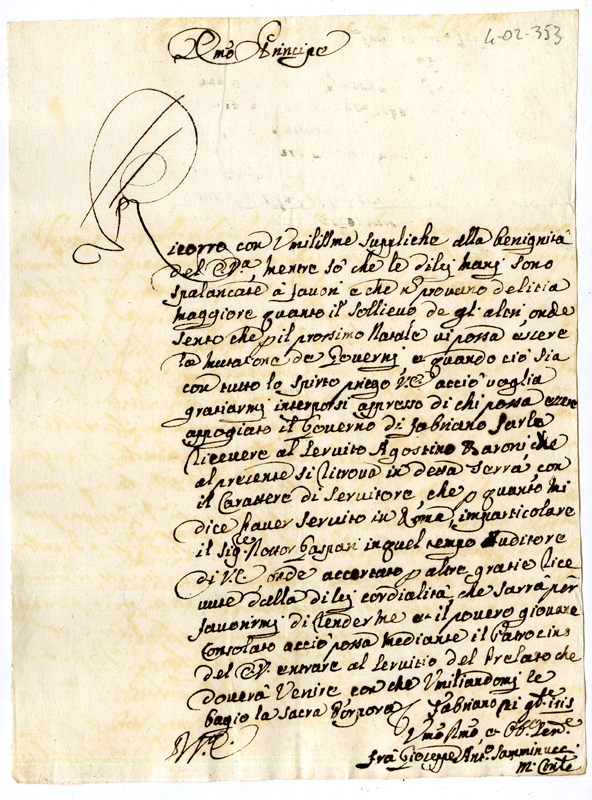 4-02-353
Emo Principe
Ricorro con Umilissme suppliche alla benignità
del EVa, mentre sò che le dilej manj sono
spalancate à favori e che n provano delitia
maggiore quanto il sollievo de gl'altri, onde
sento che p il prossimo Natale vi possa essere
la mutatone de Governj e quando ciò sia
con tutto lo spirto priego V.E. acciò voglia
gratiarmj interporsi appresso di chi possa essere
appogiato il Governo di Fabriano farlo
ricevere al servito Agostino Baronj che
al presente si ritrova in detta Terra, con
il Carattere di Servitore, che p quanto mi
dice haver servito in Roma, imparticolare
il Sigre Dottor Gaspari in quel tempo Auditore
di V.E. onde accertato p altre gratie rice
vute dalla dilej cordialità che sarrà per
favorirmj di rendermene e il povero giovane
Consolato acciò possa mediante il Patrocinio
del EV. entrare al servitio del Prelato che
doverà venire con che Umiliandomj le
bagio la Sacra Porpora Fabriano
V.E.
Umo e
frà Gioseppe Anto. Samminucci
M. Conle